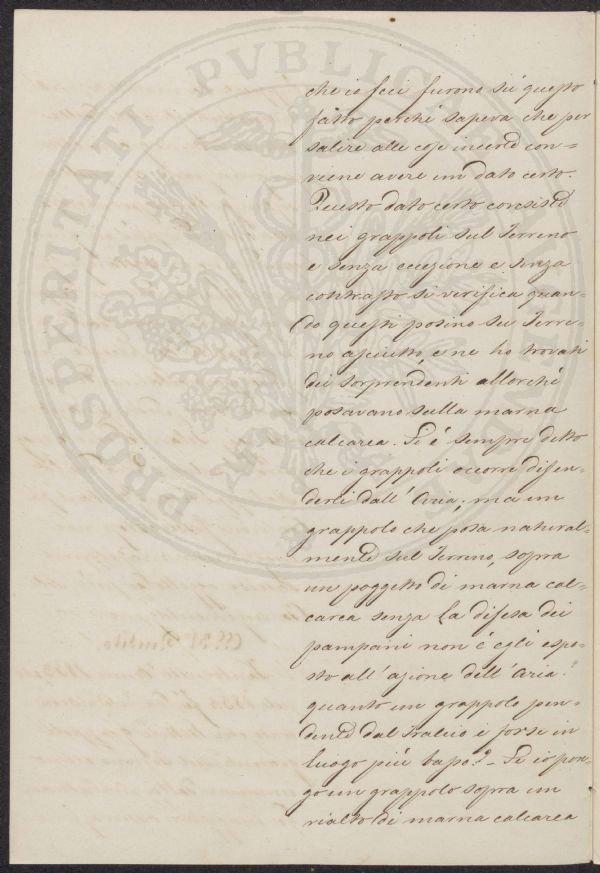 PROSPERITATI PVBLICAE
che io feci furono su questo
fatto perché sapeva che per
salire alle cose incerte con=
viene avere un dato certo.
Questo dato certo consiste
nei grappoli sul Terreno
e senza eccezione e senza
contrasto si verifica quan=
do questi posino su Terre=
no asciutto, e ne ho trovati
dei sorprendenti allorché
posavano sulla marna
calcarea. Si è sempre detto
che i grappoli occorre difen=
derli dall' Aria, ma un
grappolo che posa natural=
mente sul Terreno, sopra
un poggetto di marna cal=
carea senza la difesa dei
pampani non è egli espo=
sto all' azione dell' Aria?
quanto un grappolo pen=
dente dal tralcio e forse in
luogo più basso? – Se io pon=
go un grappolo sopra un
rialto di marna calcarea